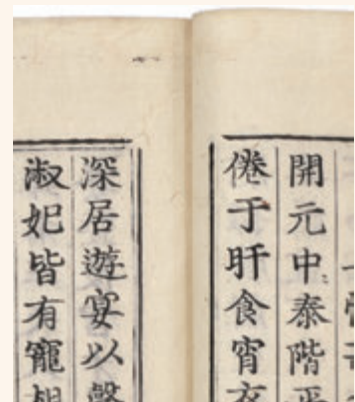 開元中泰階平
倦于肝食宵衣
深居遊宴以聲
淑妃皆有寵相